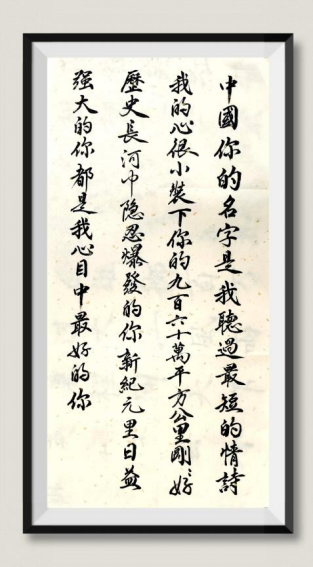 中國你的名字是我聽過最短的情詩
我的心很小裝下你的九百六十萬平方公里剛〻好
歷史長河中隐忍爆發的你新紀元里日益
强大的你都是我心目中最好的你